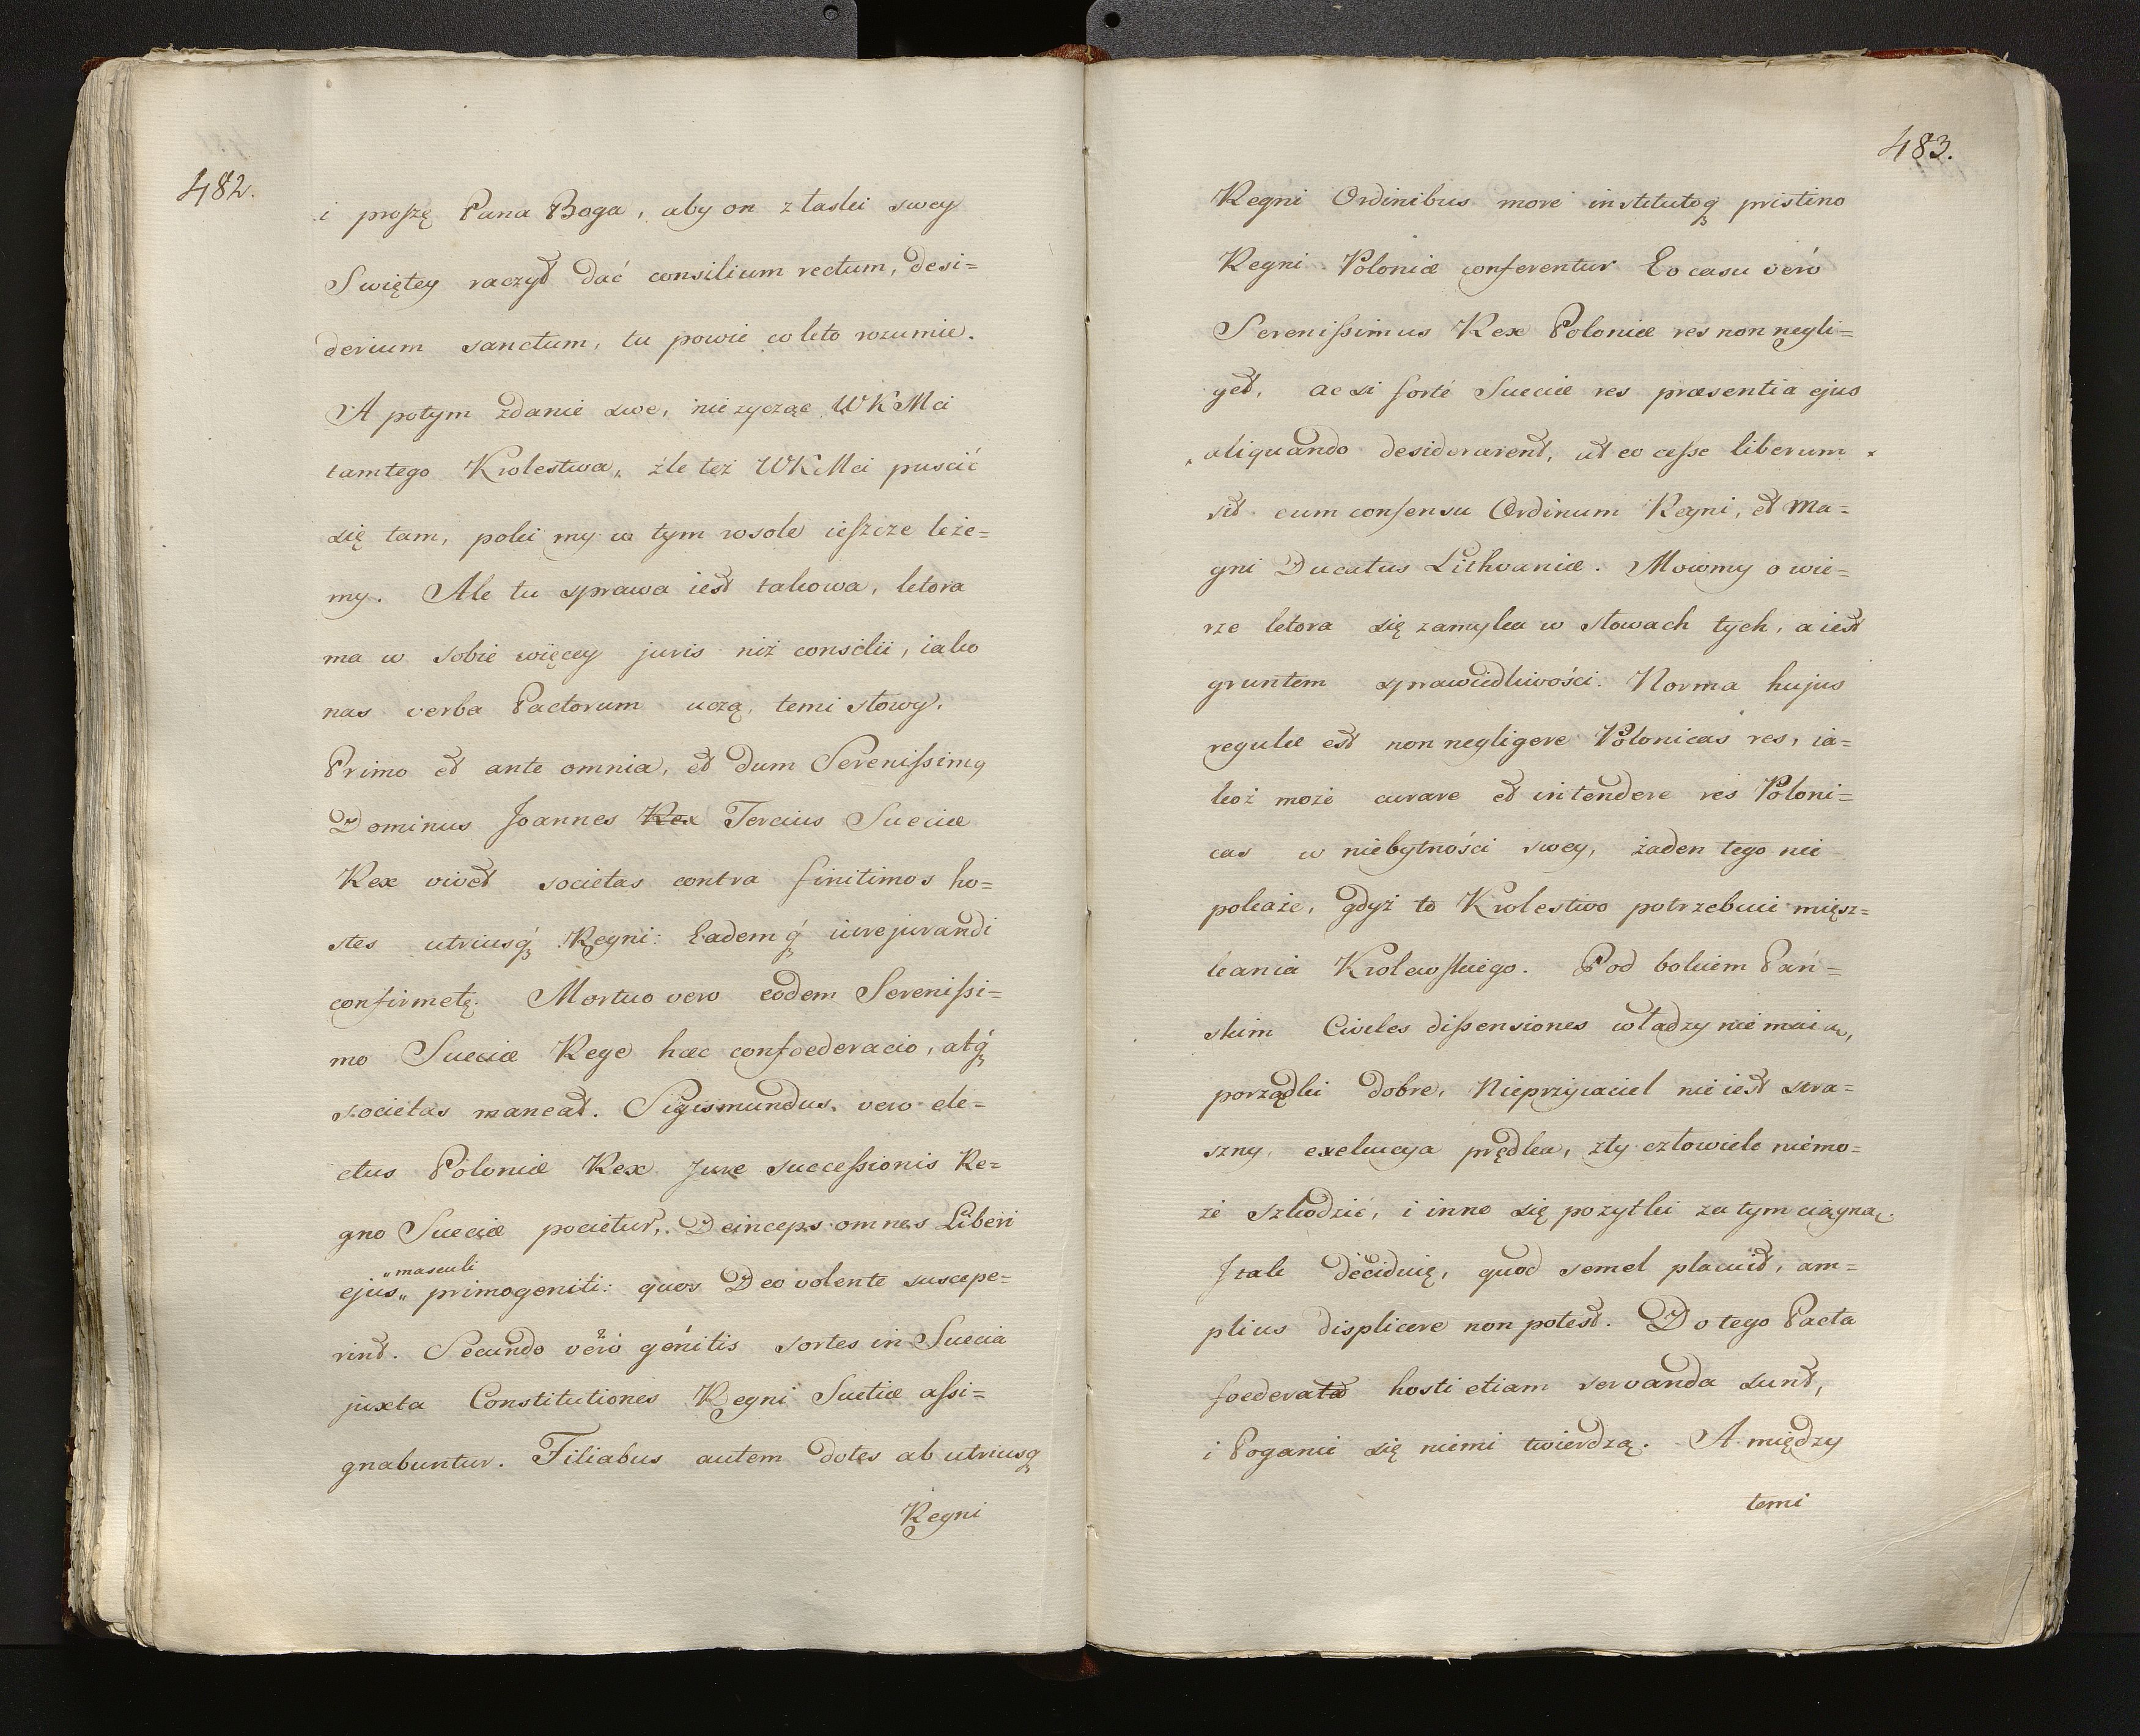 482.
i proszę Pana Boga, aby on z łaski swey
Swiętey raczył dać consilium rectum, desi=
derium sanctum, tu powie co kto rozumie.
A potym zdanie swe, nie zycząc WKMci
tamtego Krolestwa, źle też WKMci puscić
się tam, poki my w tym rosole ieszcze leże=
my. Ale tu sprawa iest takowa, ktora
ma w sobie więcey juris niż consilii, iako
nas verba Pactorum uczą, temi słowy.
Primo et ante omnia, et dum Serenissimq
Dominus Joannes Rex Tercius Sueciæ
Rex vivet societas contra finitimos ho=
stes utriusq́ Regni: Eademq́ iurejurandi
confirmetę. Mortuo vero eodem Serenissi=
mo Sueciæ Rege hæc confoederacio, atq́
societas maneat. Sigismundus, vero ele=
ctus Poloniæ Rex Jure successionis Re=
gno Sueciæ pocietur, Deinceps omnes Liberi
„masculi
ejus„ primogeniti: quos Deo volente suscepe=
rint. Secundo vero genitis sortes in Suecia
juxta Constitutiones Regni Suetiæ assi=
gnabuntur. Filiabus autem dotes ab utriusq
Regni
483.
Regni Ordinibus more institutoq pristino
Regni Poloniæ conferentur Eo casu vero
Serenissimus Rex Poloniæ res non negli=
get, ac si forté Sueciæ res præsentia ejus
aliquando desiderarent, ut eo cesse liberum
sit cum consensu Ordinum Regni, et Ma=
gni Ducatus Lithvaniæ. Mowmy o wie=
rze ktora się zamyka w słowach tych, a iest
gruntem sprawiedliwości. Norma hujus
regulæ est non negligere Polonicas res, ia=
koż może curare et intendere res Poloni=
cas w niebytności swey, żaden tego nie
pokaże, gdyż to Krolestwo potrzebuie mięsz=
kania Krolewskiego. Pod bokiem Pań=
skim Civiles dissensiones władzy nie maią,
porządki dobre, Nieprzyiaciel nie iest stra=
szny, exekucya prędka, zły człowiek niemo=
że szkodzić, i inne się pozytki za tym ciągną.
J tak deciduię, quod semel placuit, am=
plius displicere non potest. Do tego Pacta
foederata hosti etiam servanda sunt,
i Poganie się niemi twierdzą. A między
temi